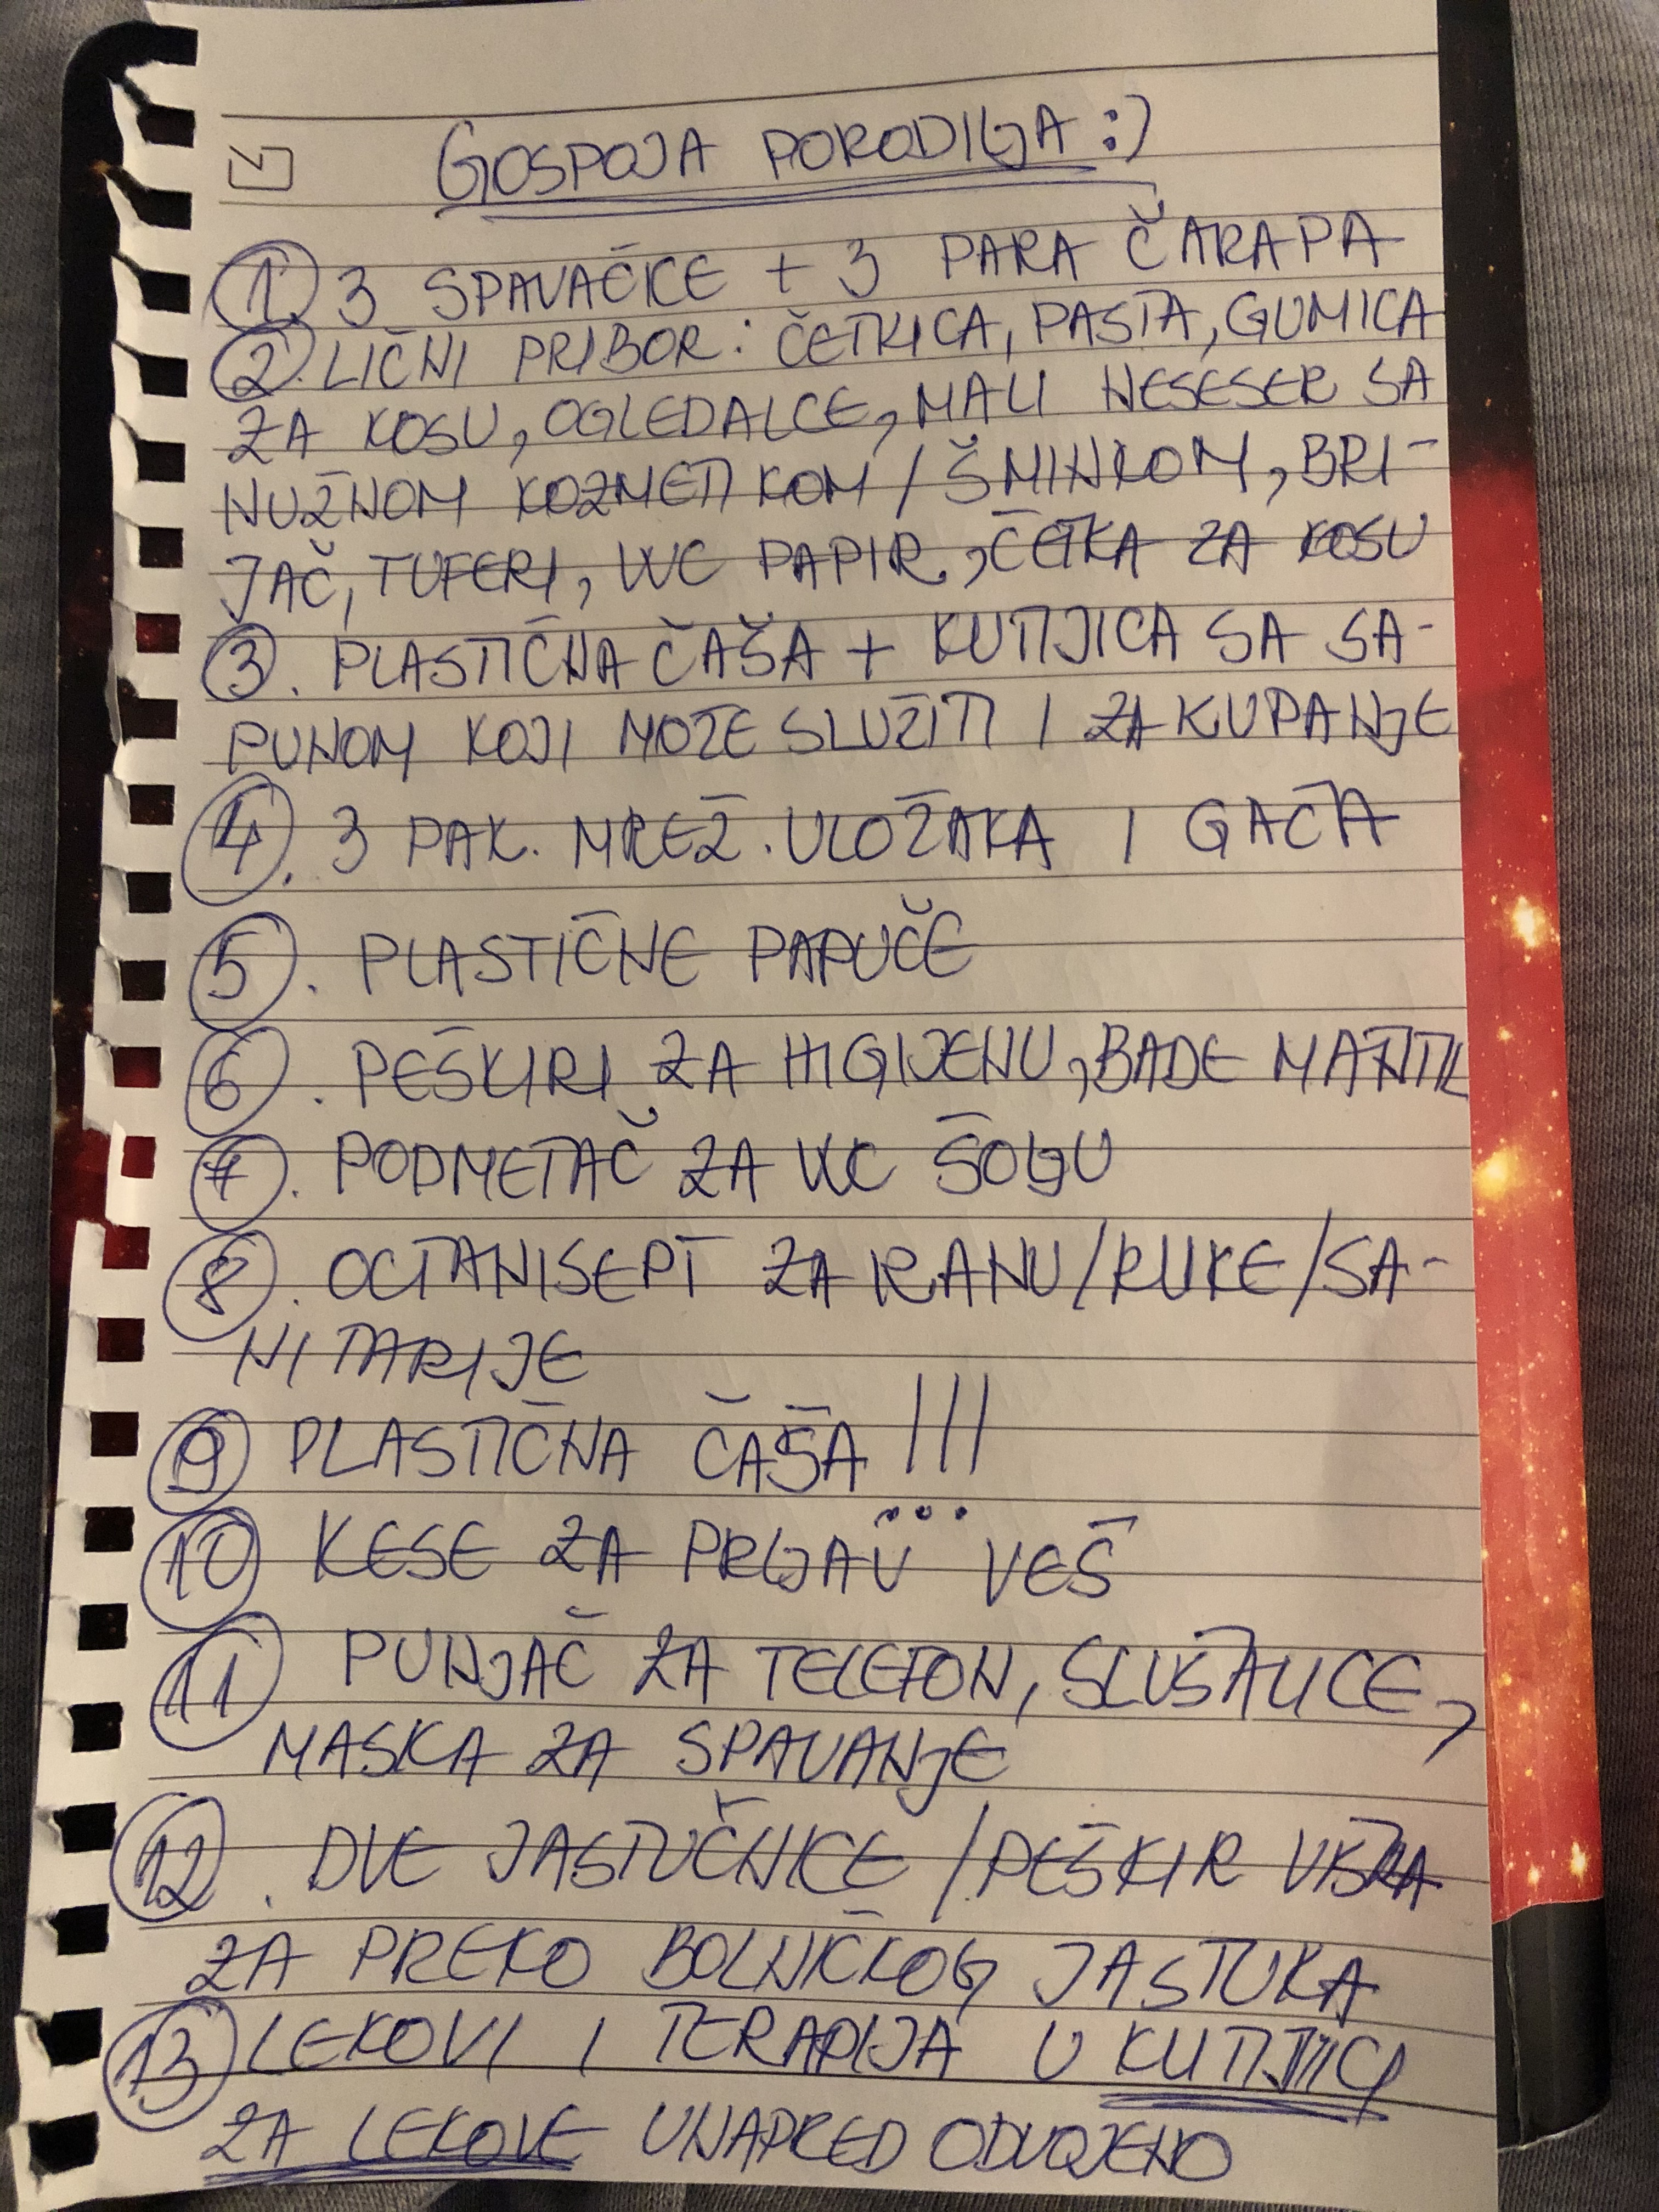 GOSPOJA PORODILJA :)
1. 3 SPAVAĆICE + 3 PARA ČARAPA
2. LIČNI PRIBOR: ČETKICA, PASTA, GUMICA
ZA KOSU, OGLEDALCE, MALI NESESER SA
NUŽNOM KOZMETIKOM / ŠMINKOM, BRI-
JAČ, TUFERI, WC PAPIR, ČETKA ZA KOSU
3. PLASTIČNA ČAŠA + KUTIJICA SA SA-
PUNOM KOJI MOŽE SLUŽITI I ZA KUPANJE
4. 3 PAK. MREŽ. ULOŽAKA I GAĆA
5. PLASTIČNE PAPUČE
6. PEŠKIRI ZA HIGIJENU, BADE MANTIL
7. PODMETAČ ZA WC ŠOLJU
8. OCTANISEPT ZA RANU/RUKE/SA-
NITARIJE
9 PLASTIČNA ČAŠA !!!
10 KESE ZA PRLJAV VEŠ
11 PUNJAČ ZA TELEFON, SLUŠALICE,
MASKA ZA SPAVANJE
12. DVE JASTUČNICE / PEŠKIR VIŠKA
ZA PREKO BOLNIČKOG JASTUKA
13 LEKOVI I TERAPIJA U KUTIJICI
ZA LEKOVE UNAPRED ODVOJENO